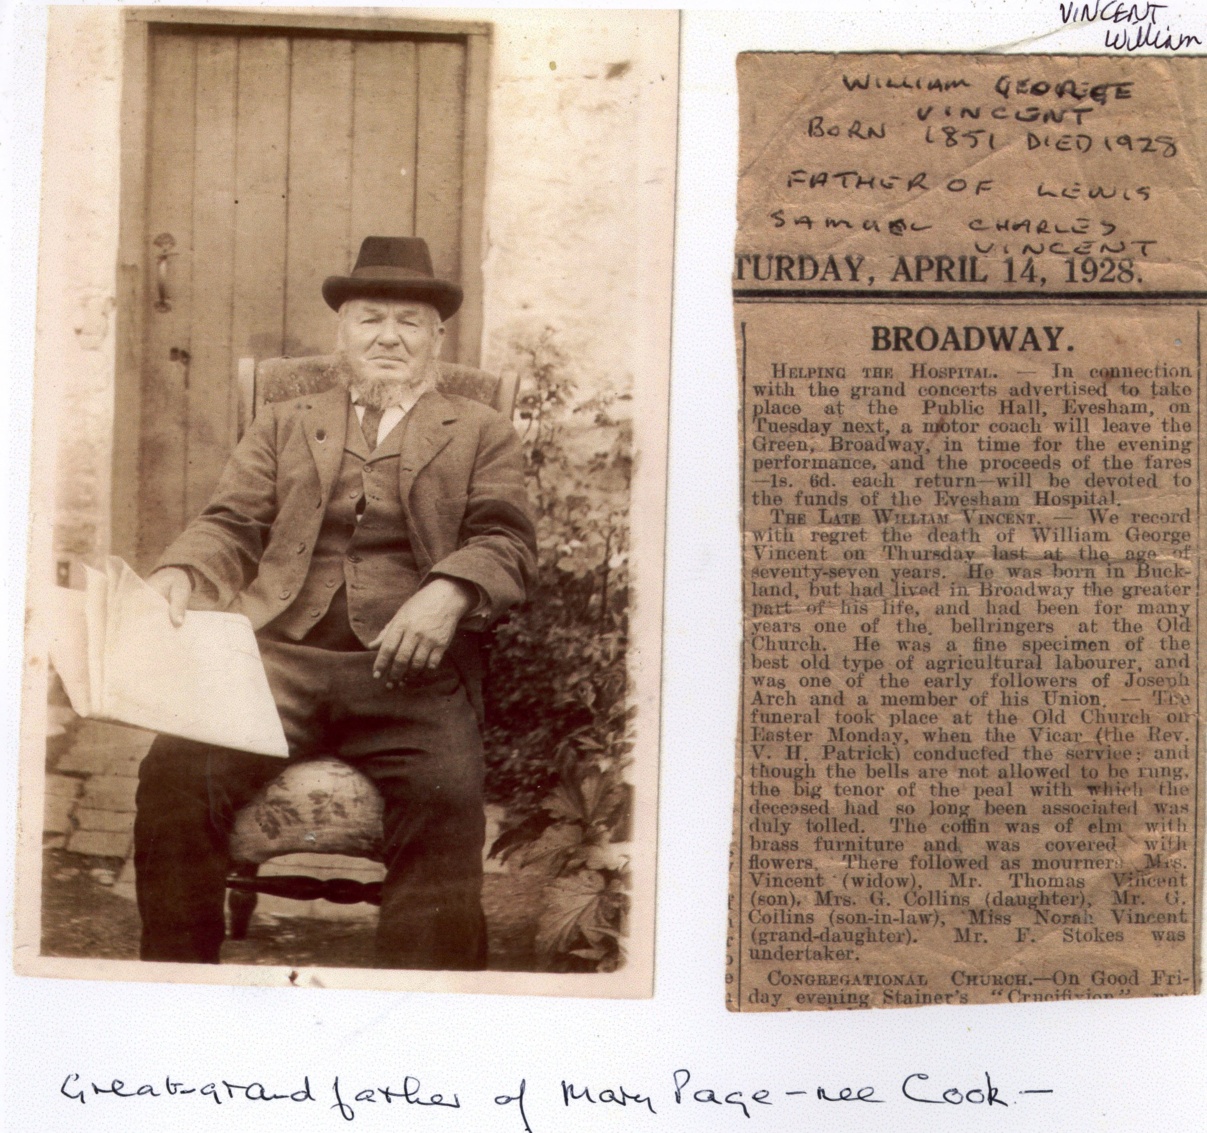 VINCENT
William
WILLIAM GEORGE
VINCENT
BORN 1851 DIED 1928
FATHER OF LEWIS
SAMUEL CHARLES
VINCENT
TURDAY, APRIL 14, 1928.
BROADWAY.
HELPING THE HOSPITAL. — In connection
with the grand concerts advertised to take
place at the Public Hall, Evesham, on
Tuesday next, a motor coach will leave the
Green, Broadway, in time for the evening
performance, and the proceeds of the fares
—1s. 6d. each return—will be devoted to
the funds of the Evesham Hospital.
THE LATE WILLIAM VINCENT. — We record
with regret the death of William George
Vincent on Thursday last at the age of
seventy-seven years. He was born in Buck-
land, but had lived in Broadway the greater
part of his life, and had been for many
years one of the bellringers at the Old
Church. He was a fine specimen of the
best old type of agricultural labourer, and
was one of the early followers of Joseph
Arch and a member of his Union. — The
funeral took place at the Old Church on
Easter Monday, when the Vicar (the Rev.
V. H. Patrick) conducted the service; and
though the bells are not allowed to be rung,
the big tenor of the peal with which the
deceased had so long been associated was
duly tolled. The coffin was of elm with
brass furniture and was covered with
flowers. There followed as mourners Mrs.
Vincent (widow), Mr. Thomas Vincent
(son), Mrs. G. Collins (daughter), Mr. G.
Collins (son-in-law), Miss Norah Vincent
(grand-daughter). Mr. F. Stokes was
undertaker.
CONGREGATIONAL CHURCH.—On Good Fri-
day evening Stainer's "Crucifixion" was
Great-grand father of Mary Page - nee Cook —